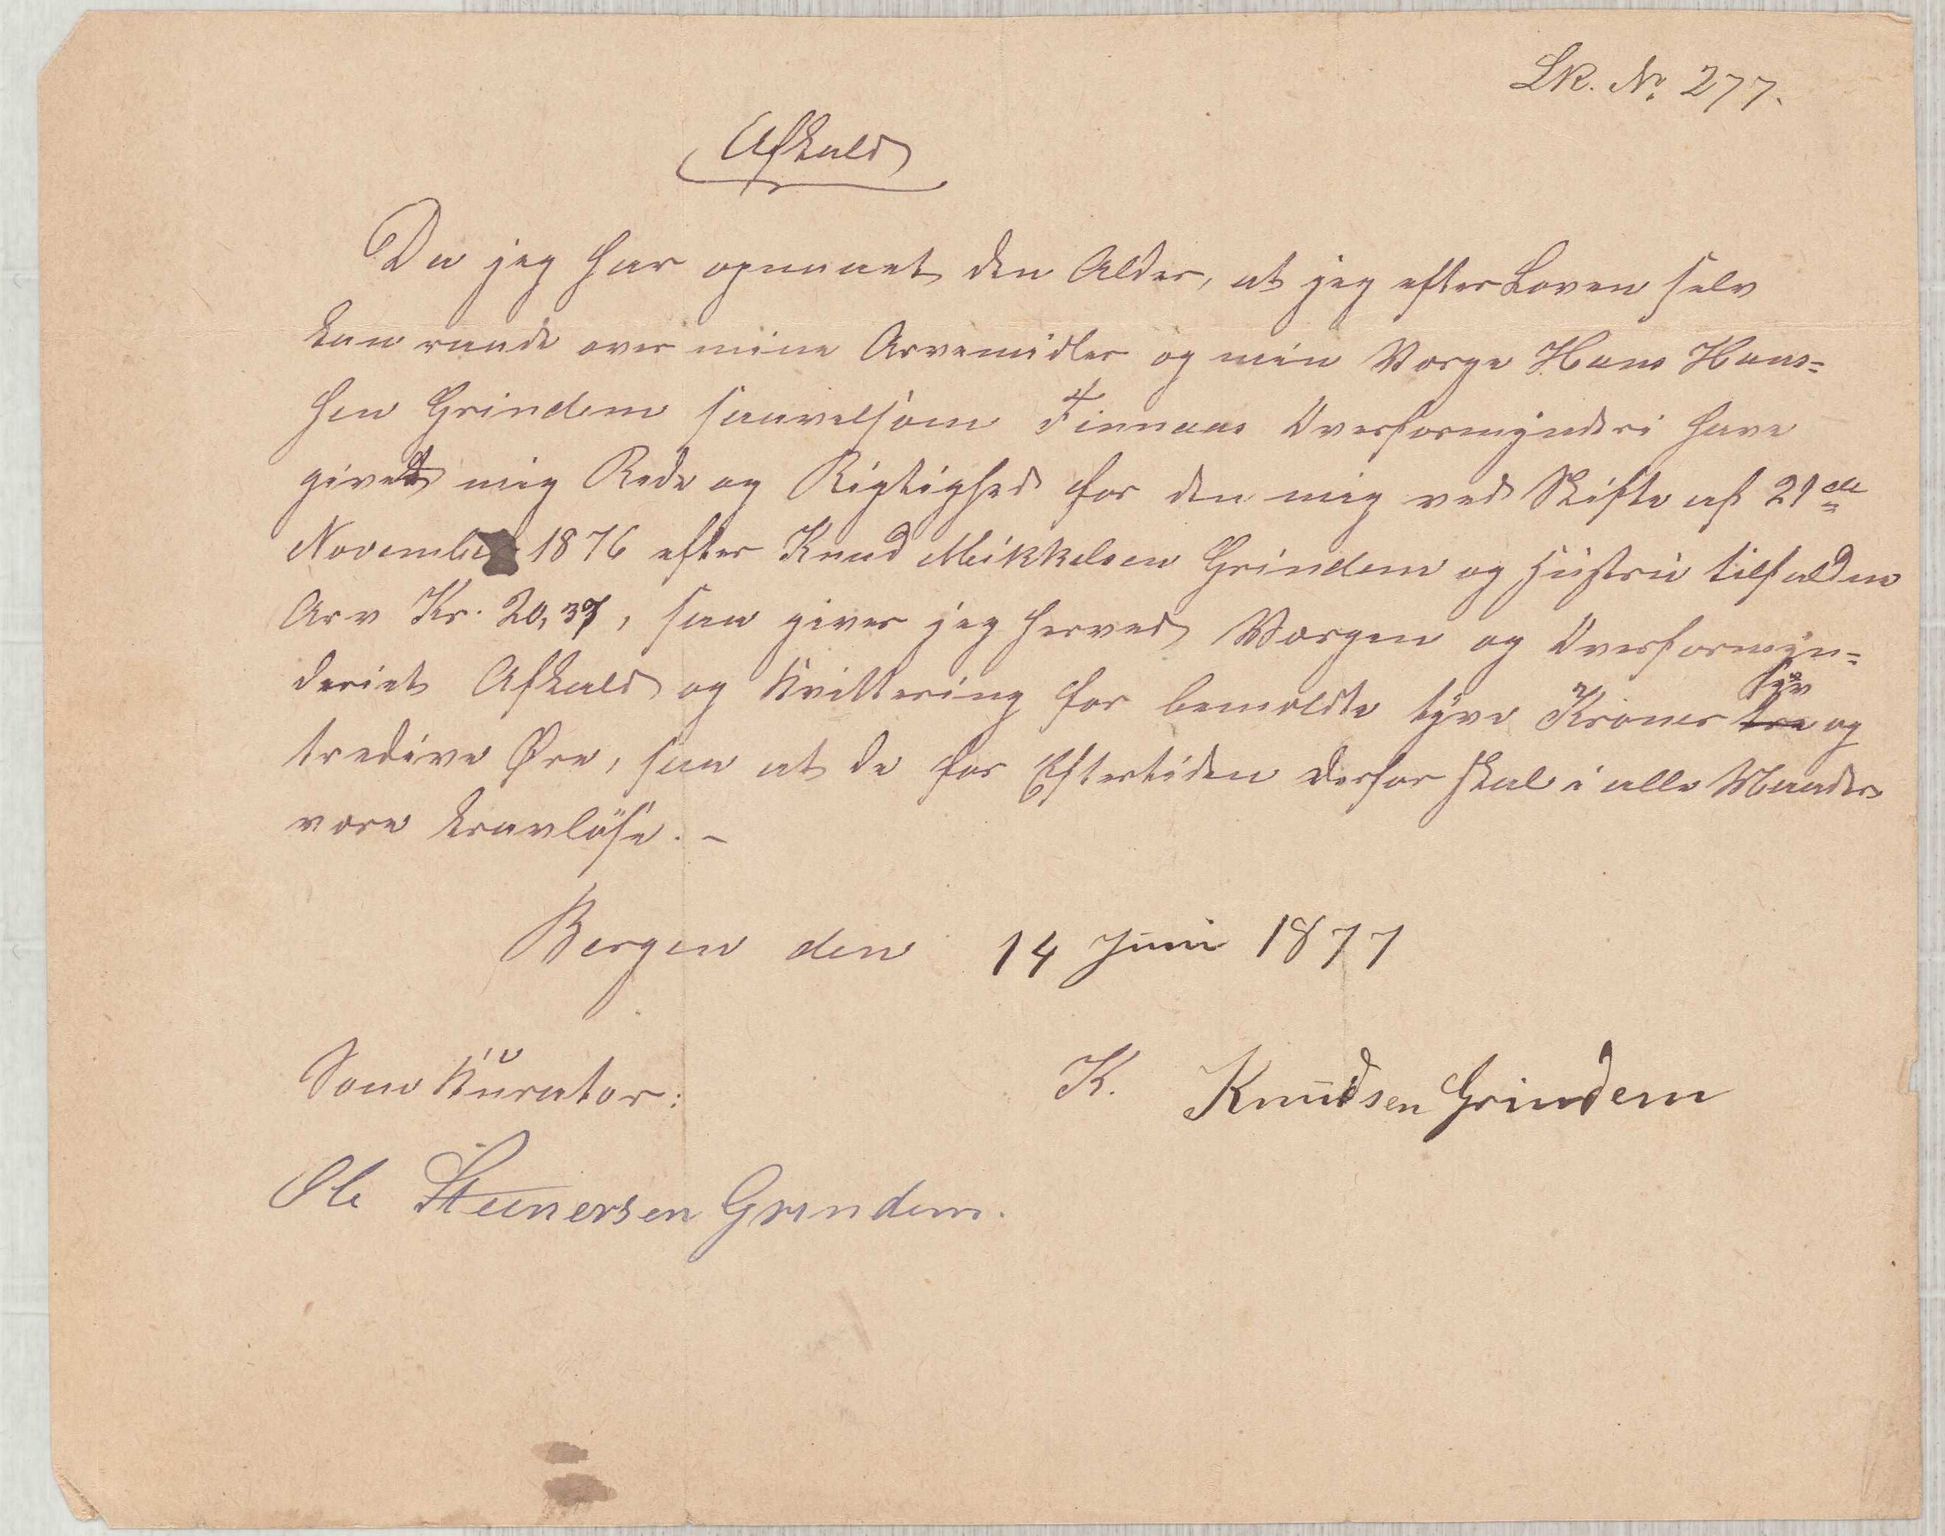 Lk. No. 277.
Afkald
Da jeg har opnaaet den Alder, at jeg efter Loven selv
kan raade over mine Arvemidler og min Værge Hans Hans=
sen Grindem saavelsom Finnaas Overformynderi have
givet mig Rede og Rigtighed for den mig ved Skifte af 21de
November 1876 efter Knud Mikkelsen Grindem og Hustru tilfaldne
Arv Kr. 20,37, saa giver jeg herved Værgen og Overformyn=
deriet Afkald og Kvittering for bemeldte tyve Kroner syv og
tredive Øre, saa at de for Eftertiden derfor skal i alle Maader
være kravløse. –
Bergen den 14 Juni 1877
Som Kurator: K. Knudsen Grindem
Ole Steinersen Grindem.